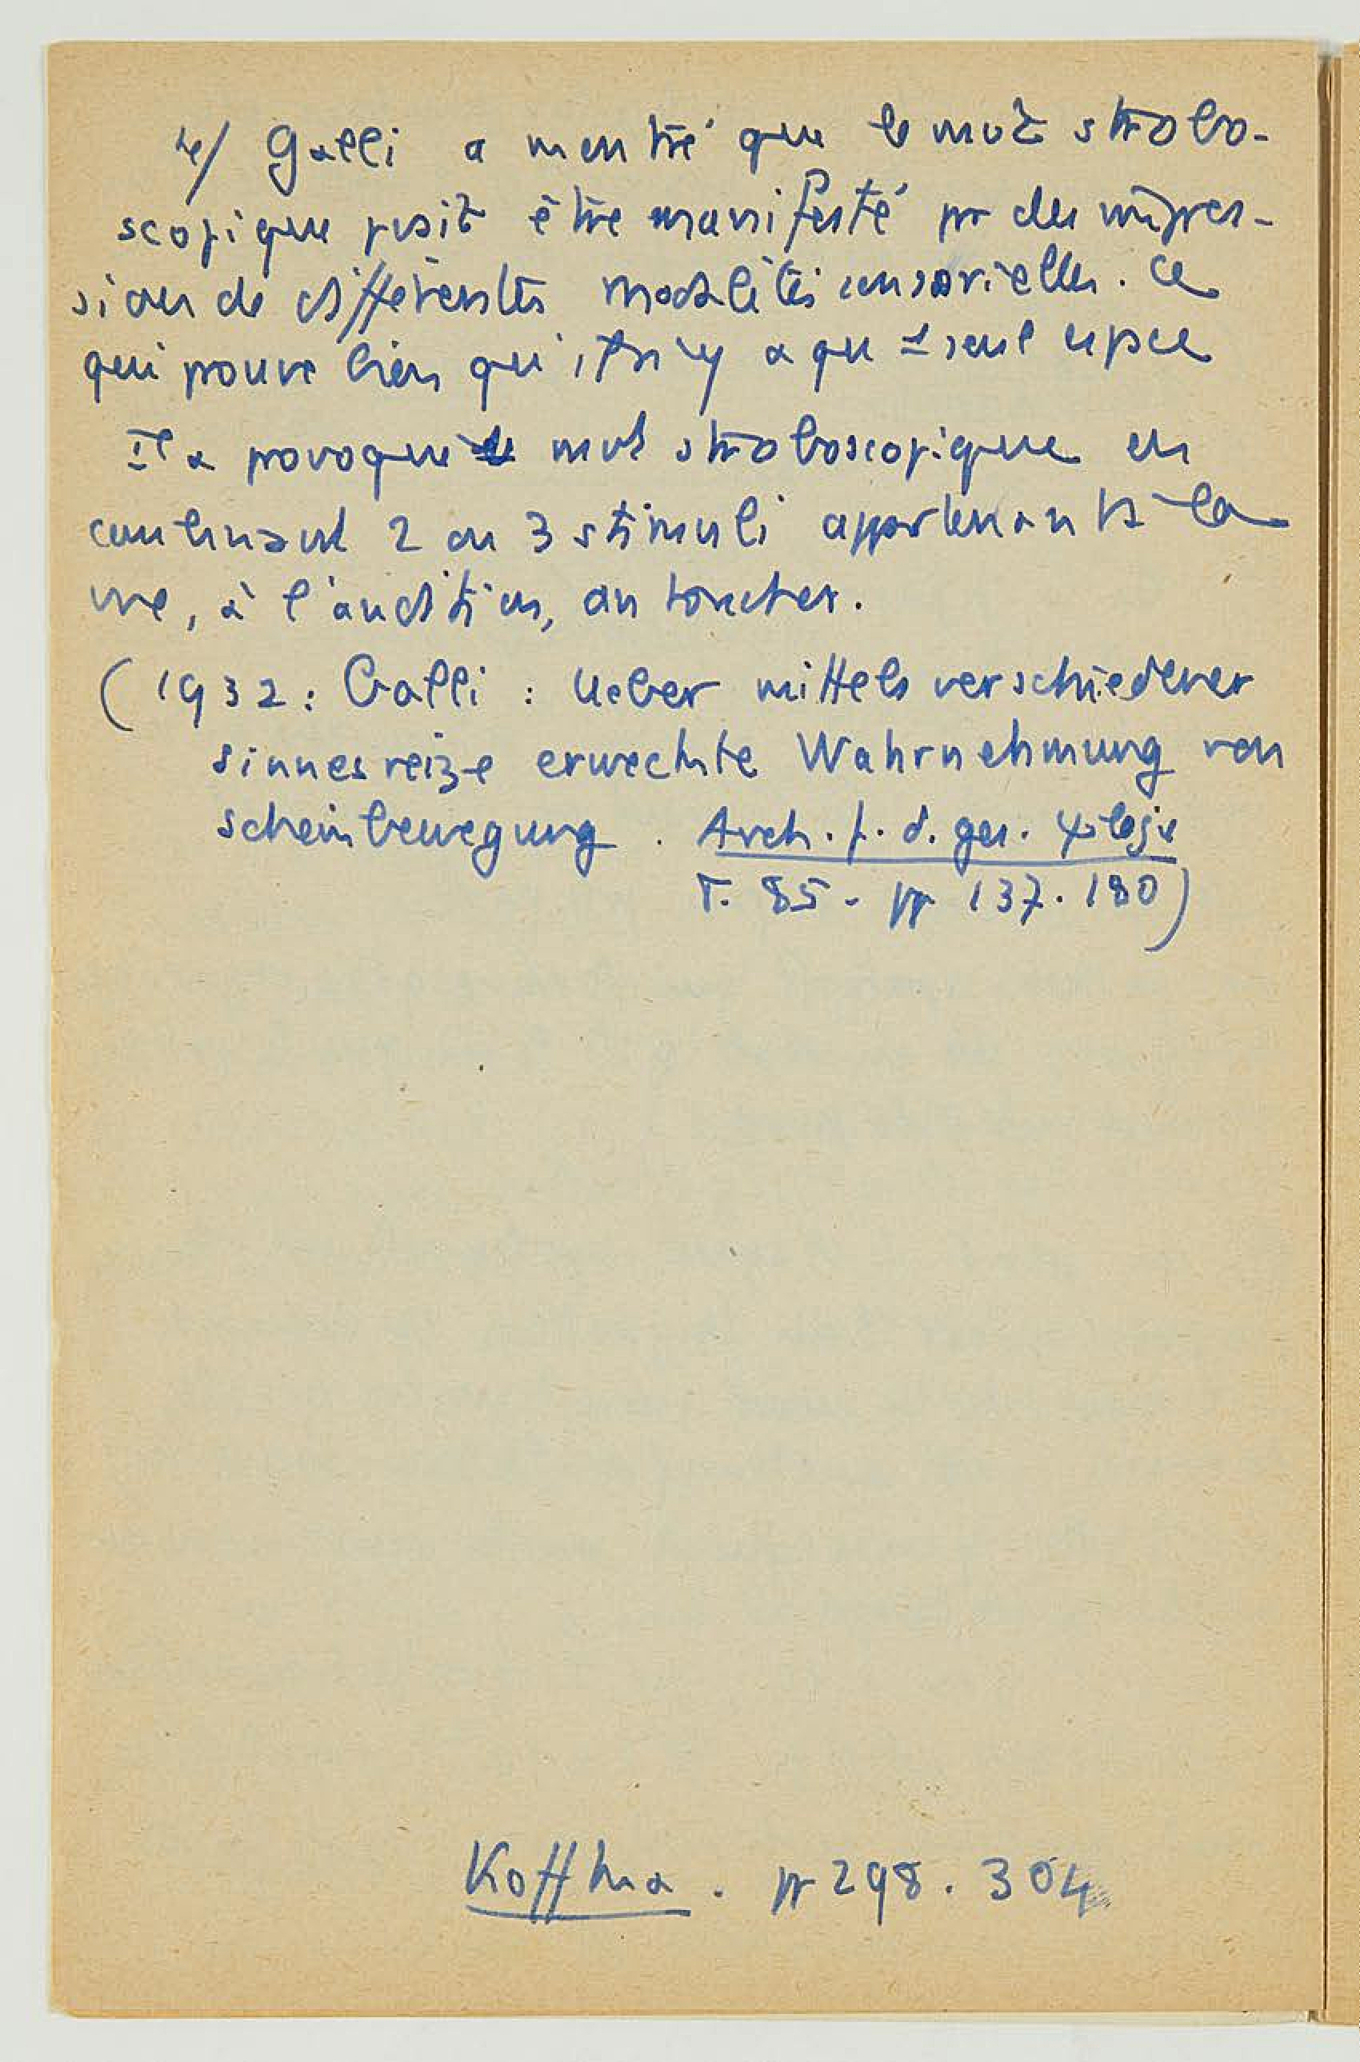 4/ Galli a montré que le mvt strobo-
scopique psait être manifesté pr des impres-
sions de différentes modalités sensorielles. Ce
qui prouve bien qu'il n'y a qu' 1 seul espace
Il a provoqué le mvt stroboscopique en
combinant 2 ou 3 stimuli appartenant à la
vue, à l'audition, au toucher.
(1932 : Galli : Ueber mittels verschiedener
sinnesreize erweckte Wahrnehmung von
scheinbewegung . Arch. f. d. ges. ψlogie
T. 85 - pp 137.180)
Koffka . pp 298 . 304